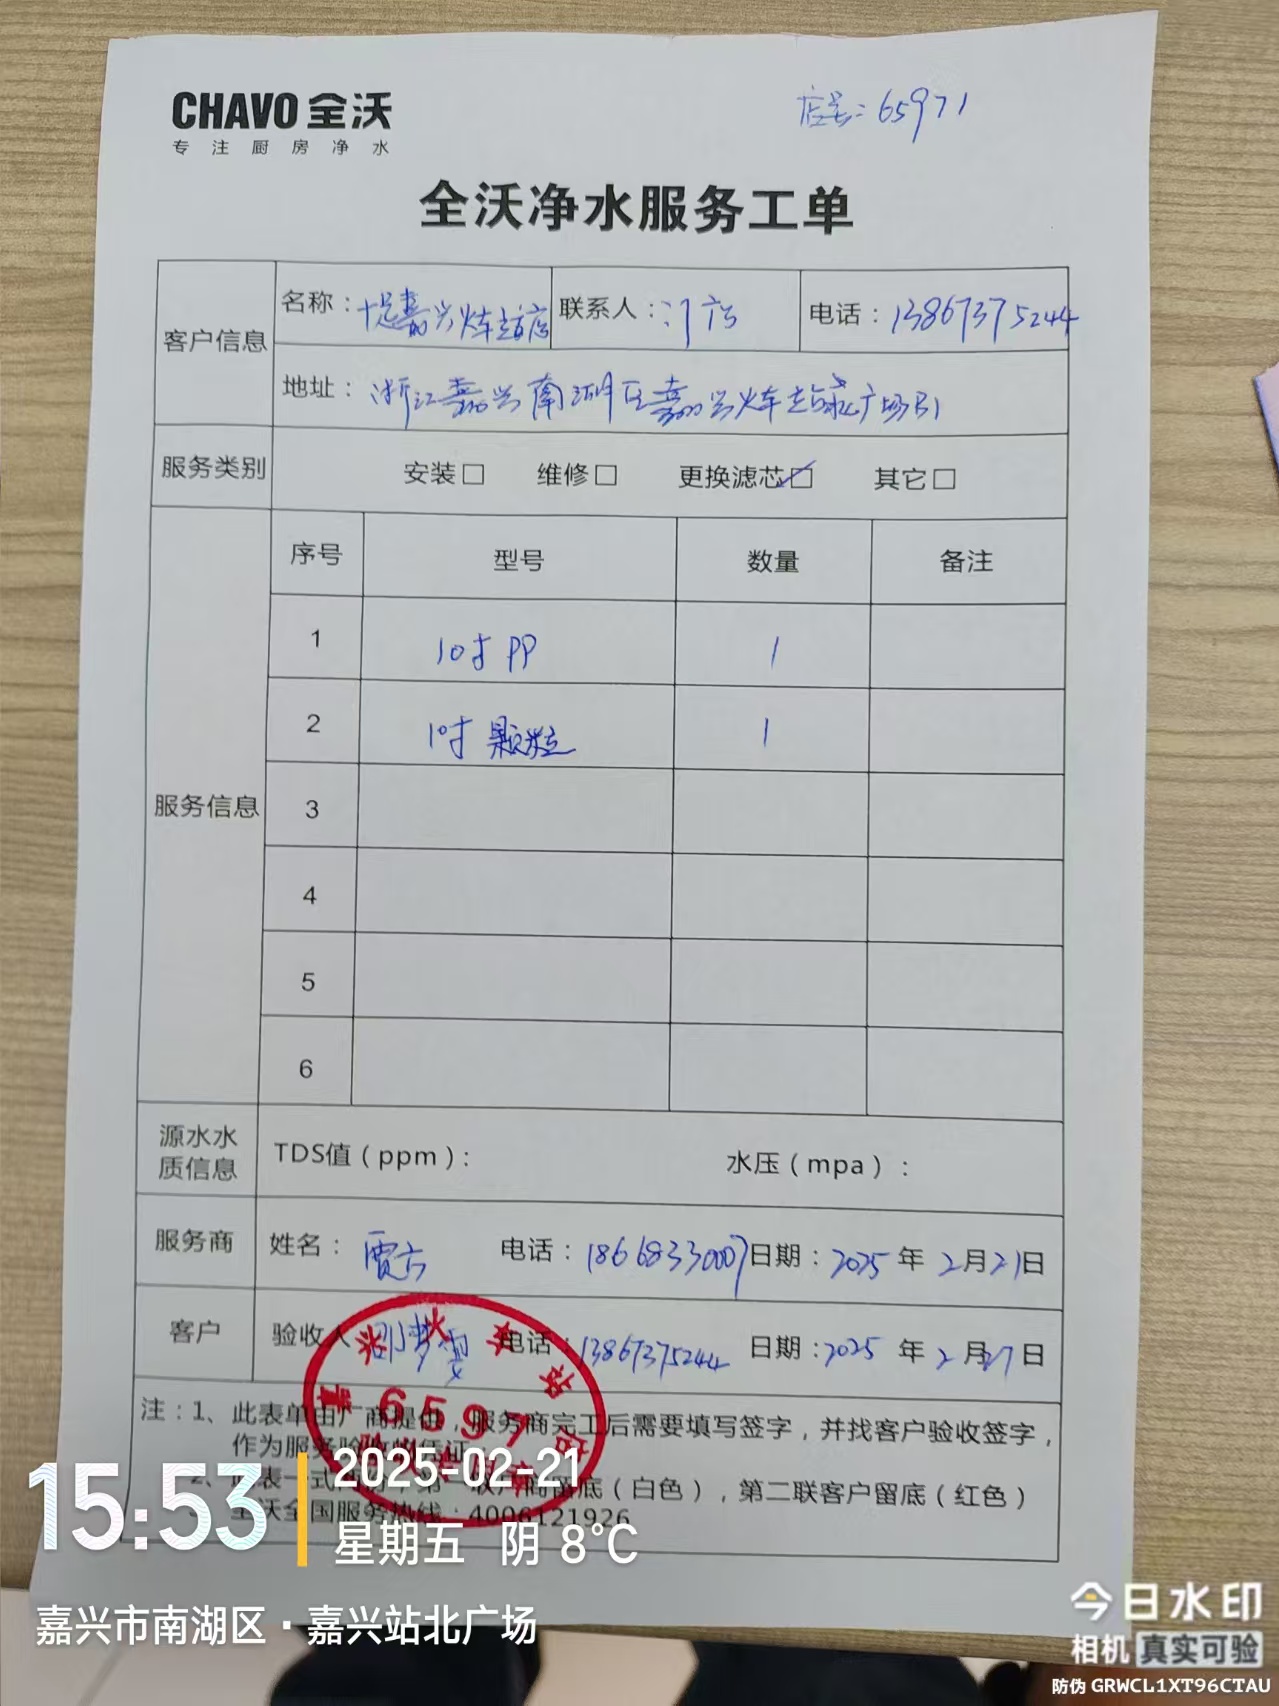 CHAVO 全沃
专注厨房净水
店号：65971
全沃净水服务工单
客户信息
名称： 嘉兴火车站店
联系人：
电话：13867375244
地址：浙江嘉兴南湖区嘉兴火车站北广场B1
服务类别
安装□ 维修□ 更换滤芯☑ 其它□
服务信息
序号 型号 数量 备注
1 10寸PP 1
2 10寸颗粒 1
3
4
5
6
源水水质信息
TDS值（ppm）： 水压（mpa）：
服务商
姓名：贾六 电话：18668330007 日期：2025年2月21日
客户
验收人 电话：13867375244 日期：2025年2月 日
注：1、此表单由厂商提供，服务商完工后需要填写签字，并找客户验收签字，
作为服务验收的凭证
（白色），第二联客户留底（红色）
全沃全国服务热线：4006121926
火车站
6597
15:53
2025-02-21
星期五 阴 8°C
嘉兴市南湖区·嘉兴站北广场
今日水印
相机 真实可验
防伪 GRWCL1XT96CTAU